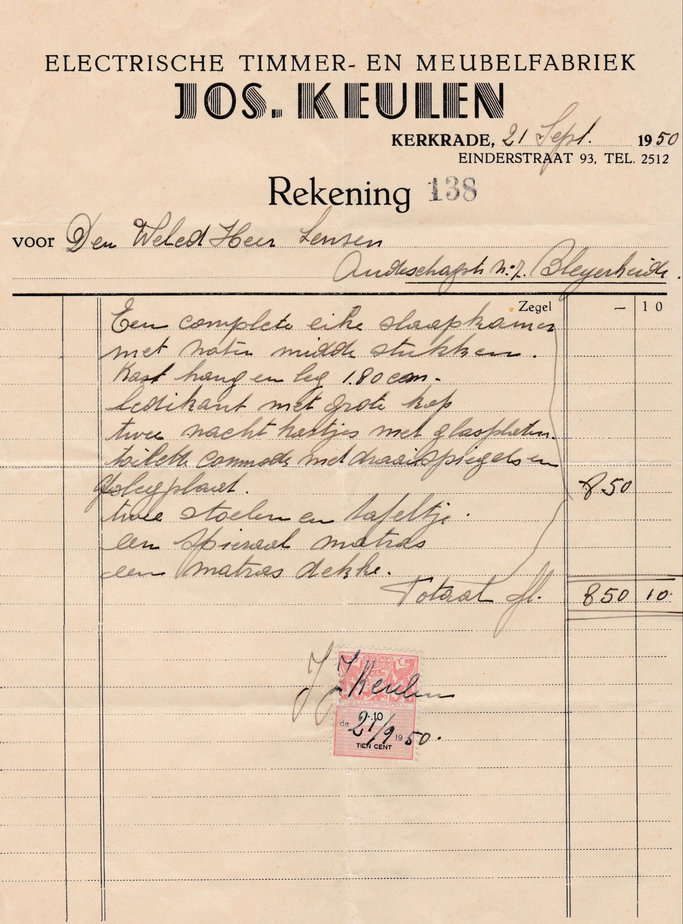 ELECTRISCHE TIMMER- EN MEUBELFABRIEK
JOS. KEULEN
KERKRADE, 21 Sept. 1950
EINDERSTRAAT 93, TEL. 2512
Rekening 138
voor Den Weled Heer Lensen
No. 7. Bleyerheide.
Zegel – 10
Een complete eike slaapkamer
met noten midde stukken.
Kast hang en leg 1.80 cm.
ledikant met grote kop
twee nacht kastjes met glasplaten.
toilette commode met draai spiegels en
glasplaat. 850
twee stoelen en tafeltje.
een spieraal matras
een matras dekke.
Totaal fl. 850 10.
J J Keulen
0.10
de 21/9 1950.
TIEN CENT